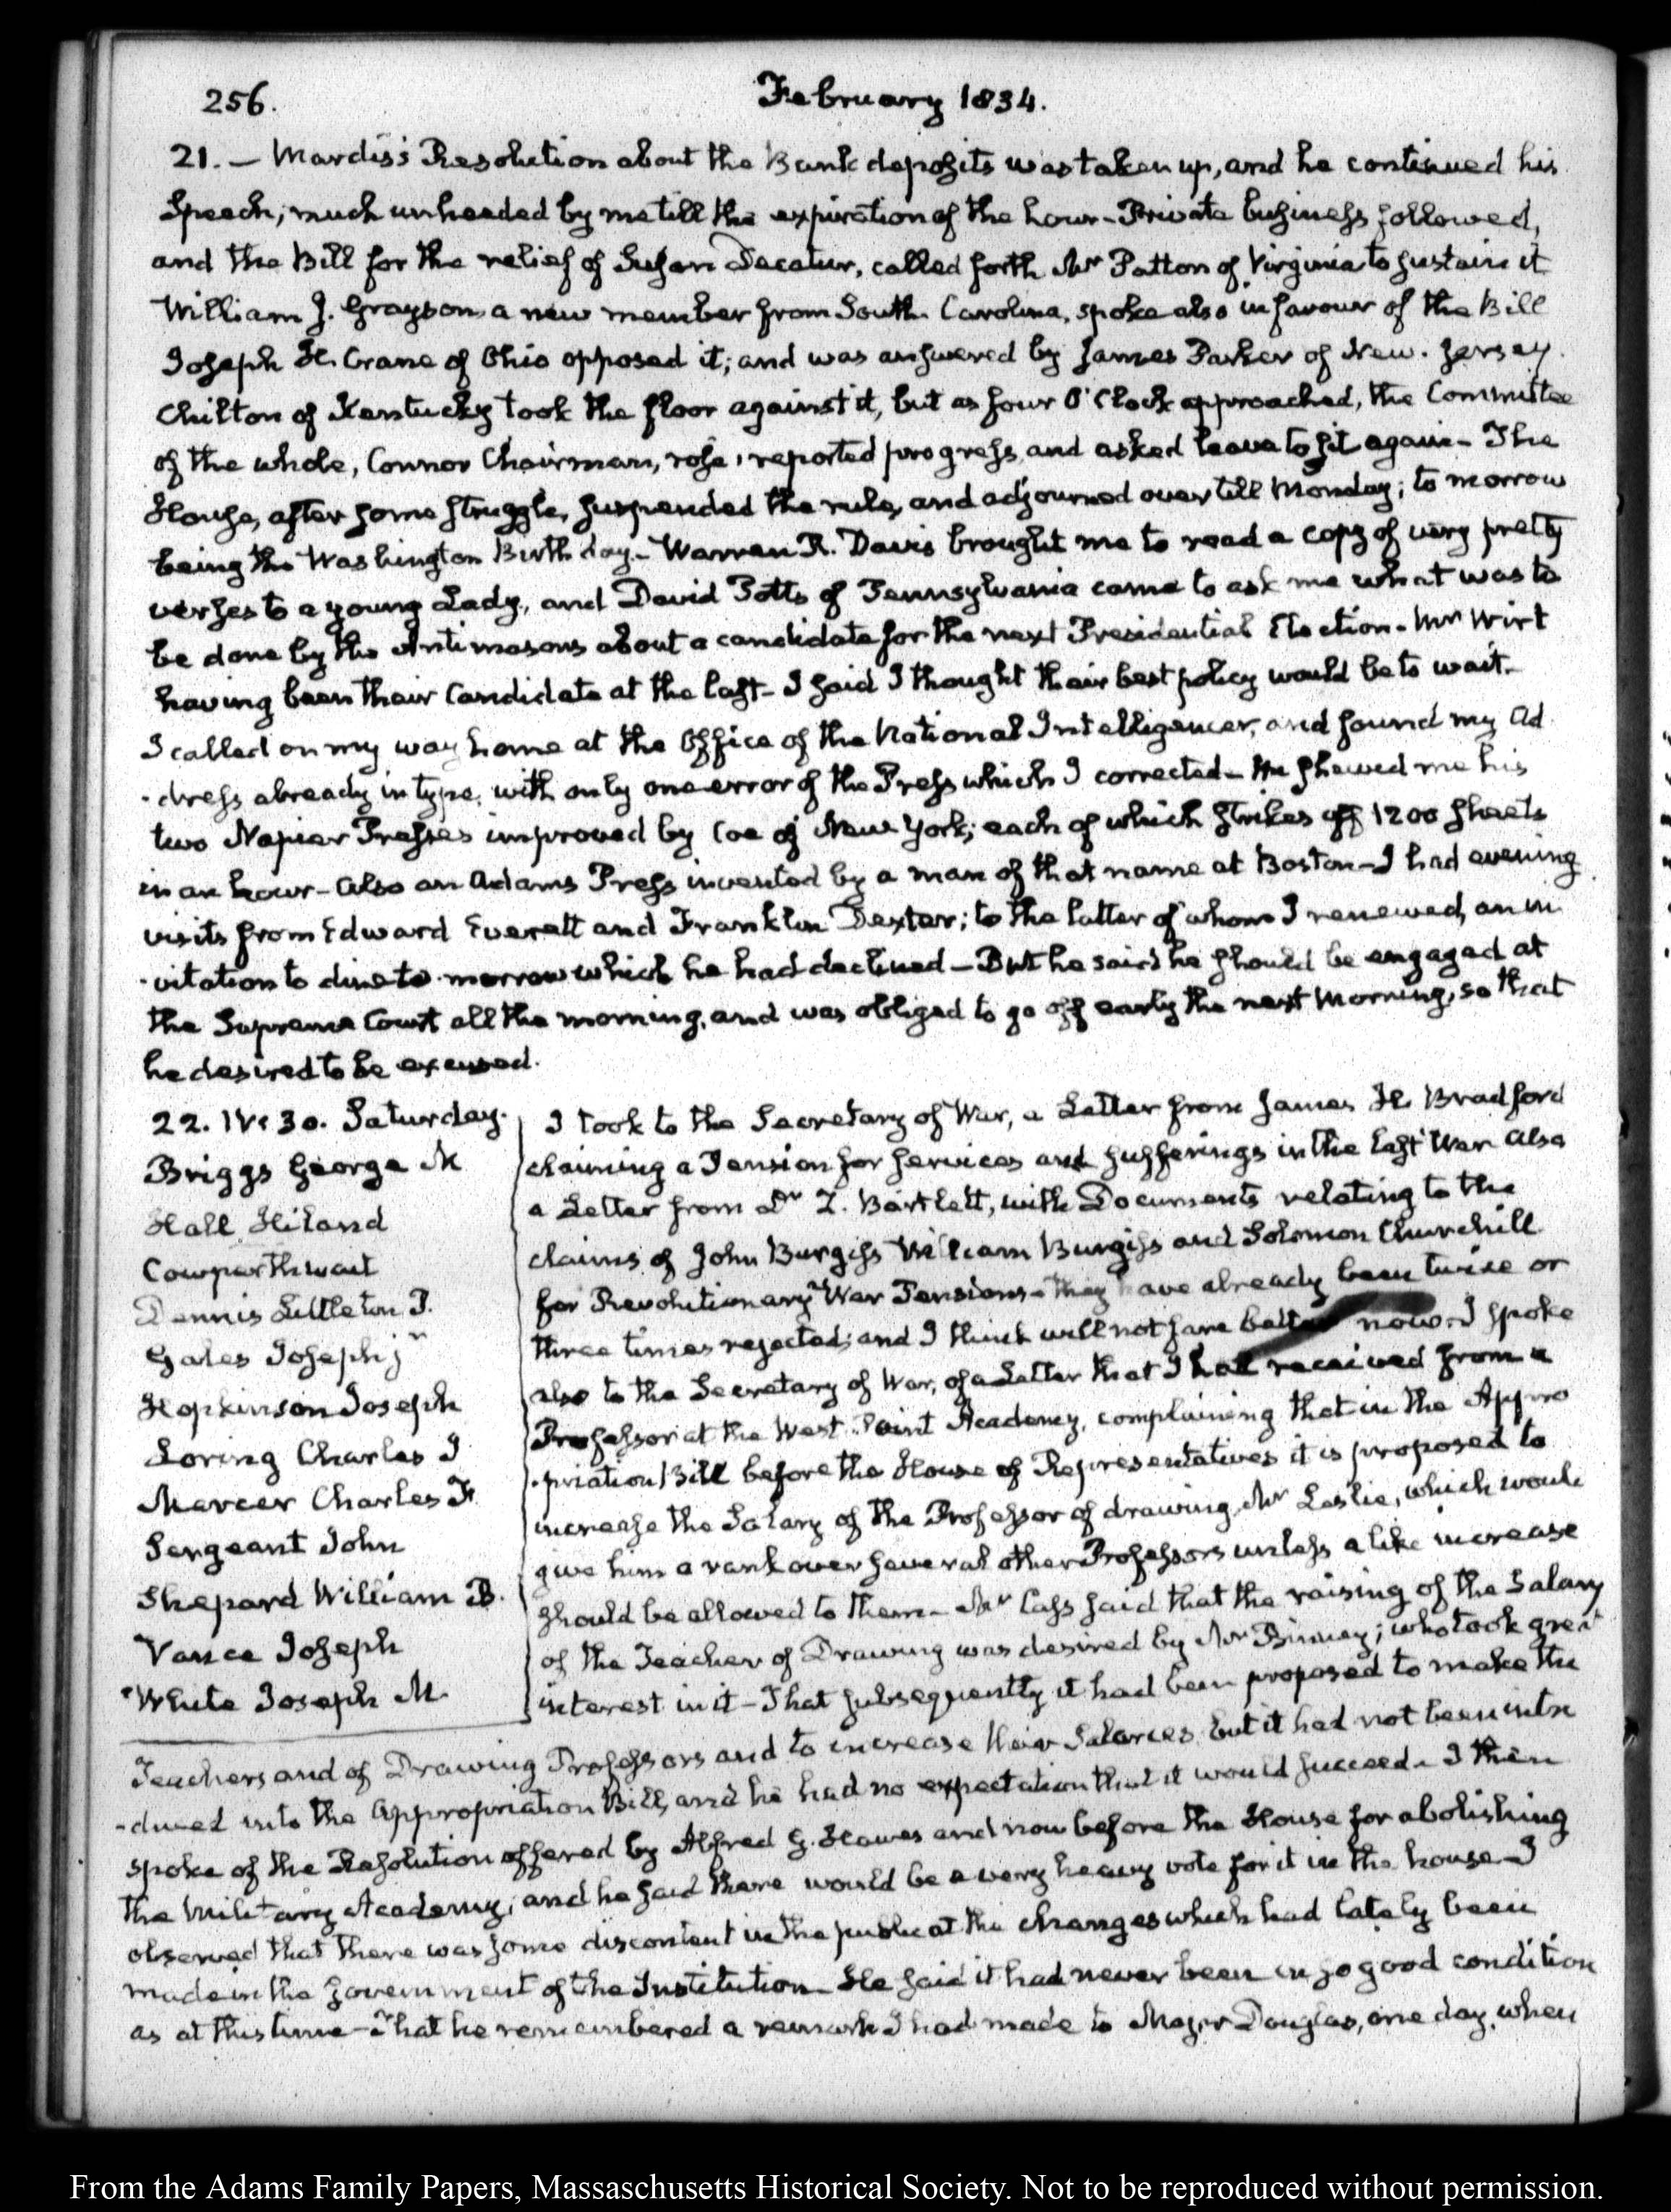 256.
February 1834.
21. — Mardis's Resolution about the Bank deposits was taken up, and he continued his
Speech, much unheeded by me till the expiration of the hour - Private business followed,
and the Bill for the relief of Susan Decatur, called forth Mr Patton of Virginia to sustain it
William J. Grayson a new member from South Carolina, spoke also in favour of the Bill
Joseph H. Crane of Ohio opposed it; and was answered by James Parker of New-Jersey.
Chilton of Kentucky took the floor against it, but as four O'Clock approached, the Committee
of the whole, Connor Chairman, rose, reported progress, and asked leave to sit again - The
House, after some struggle, suspended the rule, and adjourned over till Monday; to morrow
being the Washington Birth day - Warren R. Davis brought me to read a copy of very pretty
verses to a young Lady, and David Potts of Pennsylvania came to ask me what was to
be done by the Antimasons about a candidate for the next Presidential Election - Mr Wirt
having been their Candidate at the last - I said I thought their best policy would be to wait.
I called on my way home at the Office of the National Intelligencer, and found my Ad
-dress already in type, with only one error of the Press which I corrected - He shewed me his
two Napier Presses improved by Coe of New York; each of which strikes off 1200 sheets
in an hour - Also an Adams Press invented by a man of that name at Boston - I had evening
visits from Edward Everett and Franklin Dexter; to the latter of whom I renewed, an in
-vitation to dine to-morrow which he had declined - But he said he should be engaged at
the Supreme Court all the morning, and was obliged to go off early the next Morning, so that
he desired to be excused.
22. IV: 30. Saturday.
Briggs George N
Hall Hiland
Cowperthwait
Dennis Littleton P.
Gales Joseph jr
Hopkinson Joseph
Loring Charles J
Mercer Charles F.
Sergeant John
Shepard William B.
Vance Joseph
White Joseph M.
I took to the Secretary of War, a Letter from James H. Bradford
claiming a Pension for services and sufferings in the last War also
a Letter from Dr Z. Bartlett, with Documents relating to the
claims of John Burgess William Burgess and Solomon Churchill
for Revolutionary War Pensions - They have already been twice or
three times rejected; and I think will not fare better now - I spoke
also to the Secretary of War, of a Letter that I had received from a
Professor at the West-Point Academy, complaining that in the Appro
-priation Bill before the House of Representatives it is proposed to
increase the Salary of the Professor of drawing, Mr Leslie, which would
give him a rank over several other Professors unless a like increase
should be allowed to them - Mr Cass said that the raising of the Salary
of the Teacher of Drawing was desired by Mr Binney; who took great
interest in it - That subsequently it had been proposed to make the
Teachers and of Drawing Professors and to increase their Salaries, but it had not been intro
-duced into the Appropriation Bill, and he had no expectation that it would succeed - I then
spoke of the Resolution offered by Albert G. Hawes and now before the House for abolishing
the Military Academy, and he said there would be a very heavy vote for it in the house - I
observed that there was some discontent in the public at the changes which had lately been
made in the Government of the Institution - He said it had never been in so good condition
as at this time - That he remembered a remark I had made to Major Douglas, one day, when
From the Adams Family Papers, Massachusetts Historical Society. Not to be reproduced without permission.